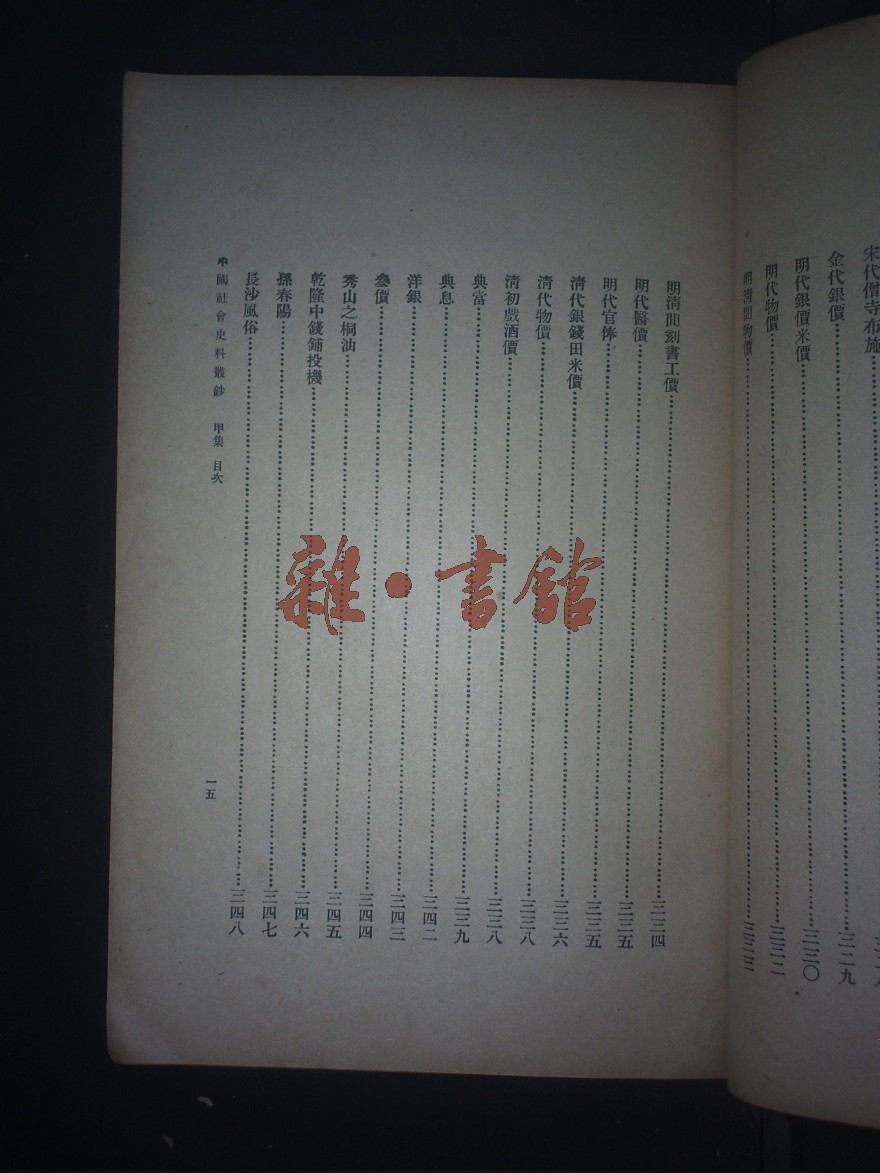 宋代僧寺布施
金代銀價……三二九
明代銀價米價……三三〇
明代物價……三三二
明清間物價……三三三
明清間刻書工價……三三四
明代醫價……三三五
明代官俸……三三五
清代銀錢田米價……三三六
清代物價……三三八
清初戲酒價……三三八
典當……三三九
典息……三四二
洋銀……三四三
參價……三四四
秀山之桐油……三四五
乾隆中錢鋪投機……三四六
孫春陽……三四七
長沙風俗……三四八
中國社會史料叢鈔 甲集 目次
一五
雜·書館